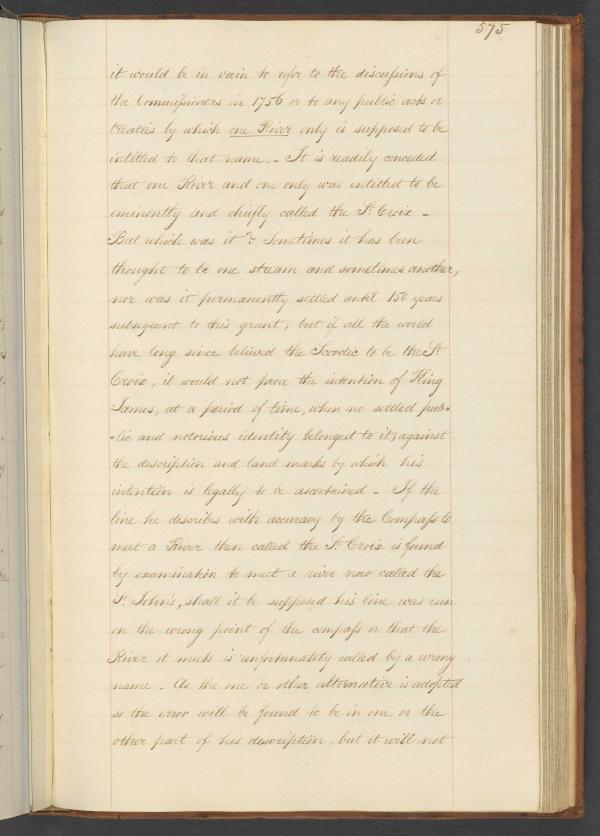 575
it would be in vain to refer to the discussions of
the Commissioners in 1756 or to any public acts or
treaties by which one River only is supposed to be
intitled to that name. - It is readily conceded
that one River and one only was entitled to be
eminently and chiefly called the St Croix -
But which was it? Sometimes it has been
thought to be one stream and sometimes another,
nor was it permanently settled until 150 years
subsequent to this grant; but if all the world
have long since believed the Scoodic to be the St
Croix, it would not prove the intention of King
James, at a period of time, when no settled pub-
-lic and notorious identity belonged to it, against
the description and land marks by which his
intention is legally to be ascertained - If the
line he describes with accuracy by the Compass to
meet a River then called the St Croix is found
by examination to meet a river now called the
St John's, shall it be supposed his line was run
on the wrong point of the compass or that the
River it meets is unfortunately called by a wrong
name - As the one or other alternative is adopted
so the error will be found to be in one or the
other part of his description, but it will not